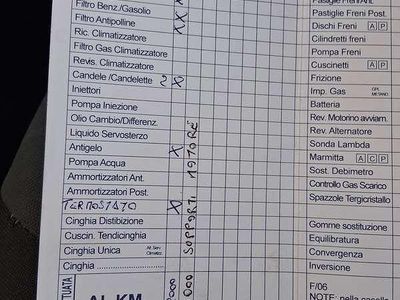 Filtro Benz./Gasolio
Filtro Antipolline X X
Ric. Climatizzatore
Filtro Gas Climatizzatore
Revis. Climatizzatore
Candele /Candelette 2 X
Iniettori
Pompa Iniezione
Olio Cambio/Differenz.
Liquido Servosterzo
Antigelo X
Pompa Acqua
Ammortizzatori Ant.
Ammortizzatori Post.
TERMOSTATO X
Cinghia Distibizione
Cuscin. Tendicinghia
Cinghia Unica
Cinghia
TUATA
AL KM
000
000 SOPPORTI MOTORE
Pastiglie Freni Ant.
Pastiglie Freni Post.
Dischi Freni A P
Cilindretti freni
Pompa Freni
Cuscinetti A P
Frizione
Imp. Gas GPL METANO
Batteria
Rev. Motorino avviam.
Rev. Alternatore
Sonda Lambda
Marmitta A C P
Sost. Debimetro
Controllo Gas Scarico
Spazzole Tergicristallo
Gomme sostituzione
Equilibratura
Convergenza
Inversione
F/06
NOTE: nella casella